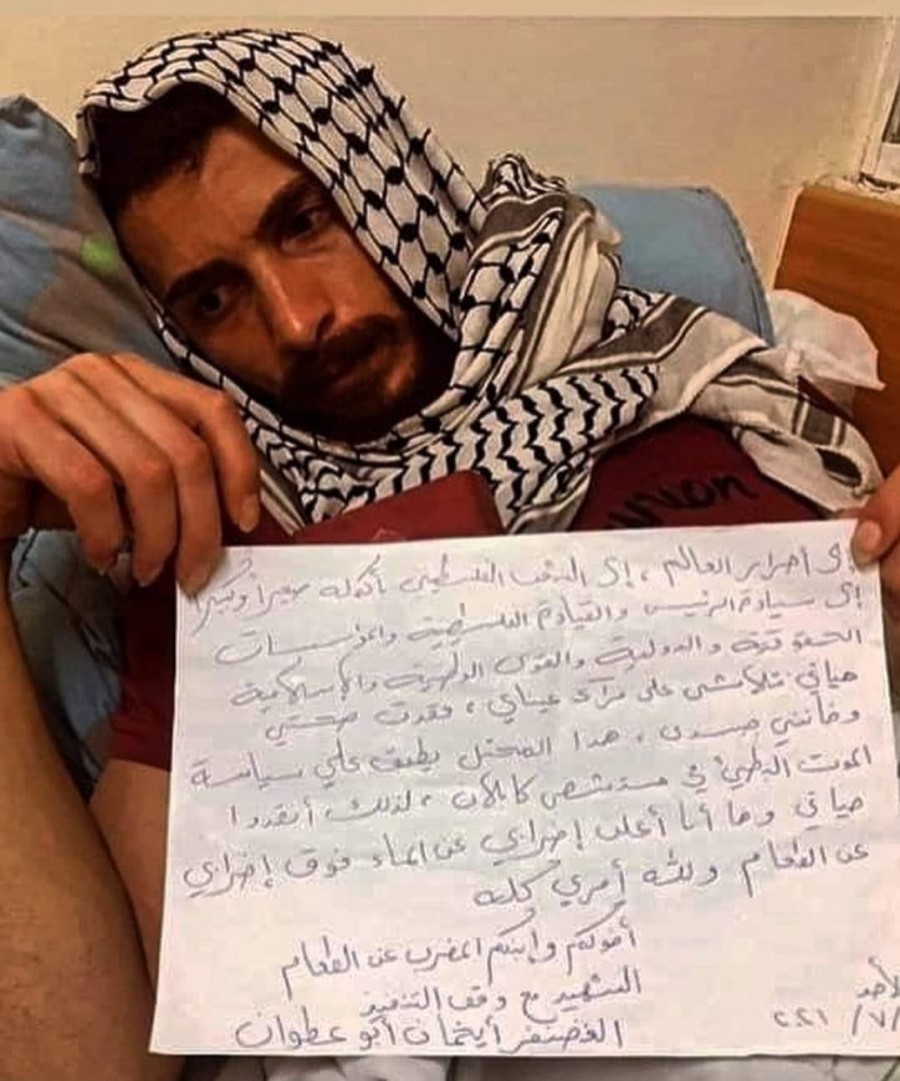 union
إلى أحرار العالم، إلى الشعب الفلسطيني بأكمله صغيراً وكبيراً
إلى سيادة الرئيس والقيادة الفلسطينية والمؤسسات
الحقوقية والدولية والقوى الوطنية والإسلامية
حياتي تتلاشى على مرآى عيناي، فقدت صحتي
وخانني جسدي، هذا المحتل يطبق علي سياسة
الموت البطيء في مستشفى كابلان، لذلك أنقذوا
حياتي وها أنا أعلن إضرابي عن الماء فوق إضرابي
عن الطعام ولله أمري كله
أخوكم وابنكم المضرب عن الطعام
الشهيد مع وقف التنفيذ
الغضنفر أيخمان أبو عطوان
الأحد
/٧/ ٢٠٢١